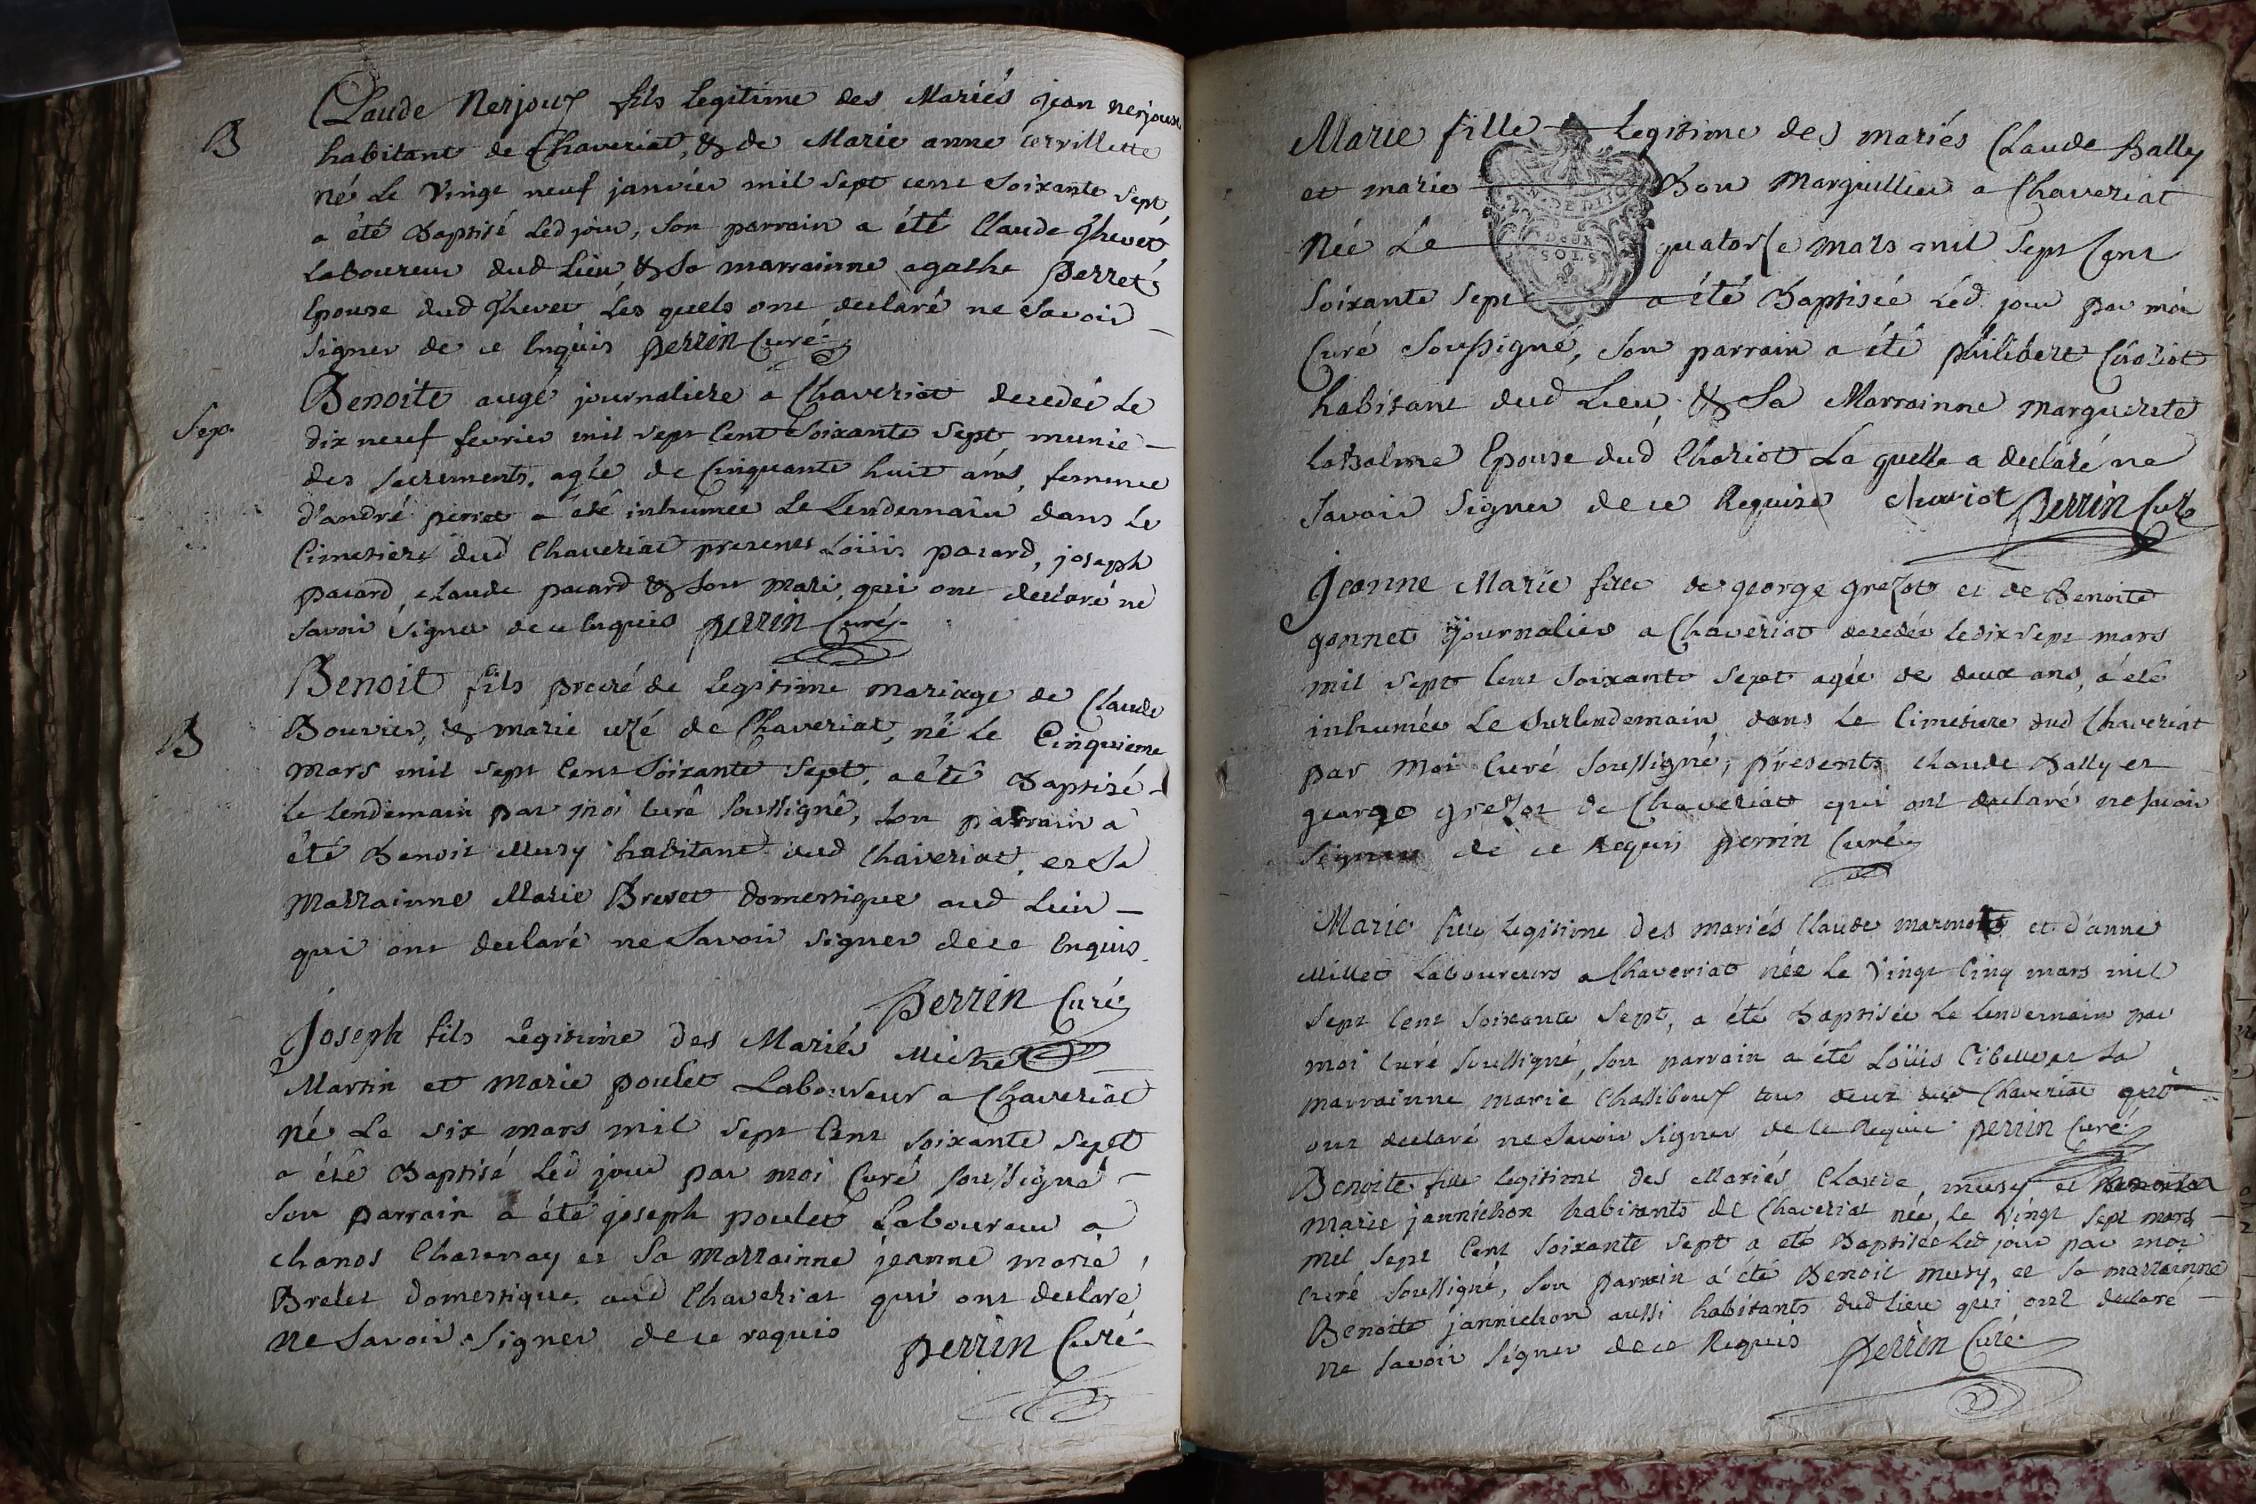 Claude Nerjoux fils legitime des Mariés jean nerjoux
B
habitant de Chaveriat, & de Marie anne cervillette
né Le Vingt neuf janvier mil sept cent soixante sept
a été Baptisé Led jour, son parrain a été Claude Thevet
Laboureur dud Lieu & Sa marrainne agathe perret
Epouse dud Thevet Les quels ont declaré ne Savoir
signer de ce Enquis perrin Curé
Benoite augé journaliere a Chaveriat decedée Le
Sep.
dix neuf fevrier mil sept Cent Soixante Sept munie
des sacrements, agée de Cinquante huit ans, femme
d'andré perret a été inhumée Le Lendemain dans Le
Cimetiere dud Chaveriat presents Loüis pacard, joseph
pacard, Claude pacard & son mari, qui ont declaré ne
savoir signer de ce Enquis perrin Curé
Benoit fils procréé de legitime mariage de Claude
B
Bouvier, & marie uzé de Chaveriat, né le Cinquieme
mars mil sept Cent Soixante Sept, a été Baptisé
le lendemain par moi Curé Soussigné, son parrain a
été Benoit Musy habitant dud Chaveriat, et Sa
Marrainne Marie Brevet domestique aud Lieu
qui ont declaré ne Savoir signer de ce Enquis
perrin Curé
Joseph fils Legitime des Mariés Michel
Martin et marie poulet Laboureur a Chaveriat
né Le six mars mil sept Cent soixante sept
a été Baptisé Led jour par moi Curé soussigné
son parrain a été joseph poulet Laboureur a
chanos Chatenay et Sa Marrainne jeanne marie
Brelet domestique aud Chaveriat qui ont declaré
ne Savoir signer de ce requis perrin Curé
Marie fille Legitime des mariés Claude Bally
et marie Bon Marguillier a Chaveriat
Née Le quatorze mars mil Sept Cent
Soixante Sept a été Baptisée Led. jour par moi
Curé Soussigné, Son parrain a été philibert Chariot
habitant dud Lieu, & Sa Marrainne Marguerite
LaBalme Epouse dud Chariot La quelle a declaré ne
Savoir signer de ce Requise chariot perrin Curé
Jeanne Marie fille de george grezot et de Benoite
gonnet journalier a Chaveriat decedée le dix sept mars
mil sept Cent Soixante Sept agée de deux ans, a été
inhumée Le Surlendemain, dans Le Cimetiere dud Chaveriat
par Moi Curé Soussigné, presents Claude Bally et
george grezot de Chaveriat qui ont declaré ne savoir
signer de ce Requis perrin Curé
Marie fille Legitime des mariés Claude et d'anne
Millet Laboureurs a Chaveriat née Le Vingt Cinq mars mil
sept Cent Soixante Sept, a été Baptisée Le lendemain par
moi Curé Soussigné, son parrain a été Loüis et Sa
marrainne marie Chassiboux tous deux dud Chaveriat qui
ont declaré ne Savoir signer de ce Requis perrin Curé
Benoite fille legitime des Mariés Claude musy et
Marie jannichon habitants de Chaveriat née, le Vingt sept mars
mil sept Cent Soixante sept a été Baptisée Led jour par moi
Curé Soussigné, son parrain a été Benoit Musy, et Sa marrainne
Benoite jannichon aussi habitants dud Lieu qui ont declaré
ne savoir signer de ce Requis perrin Curé